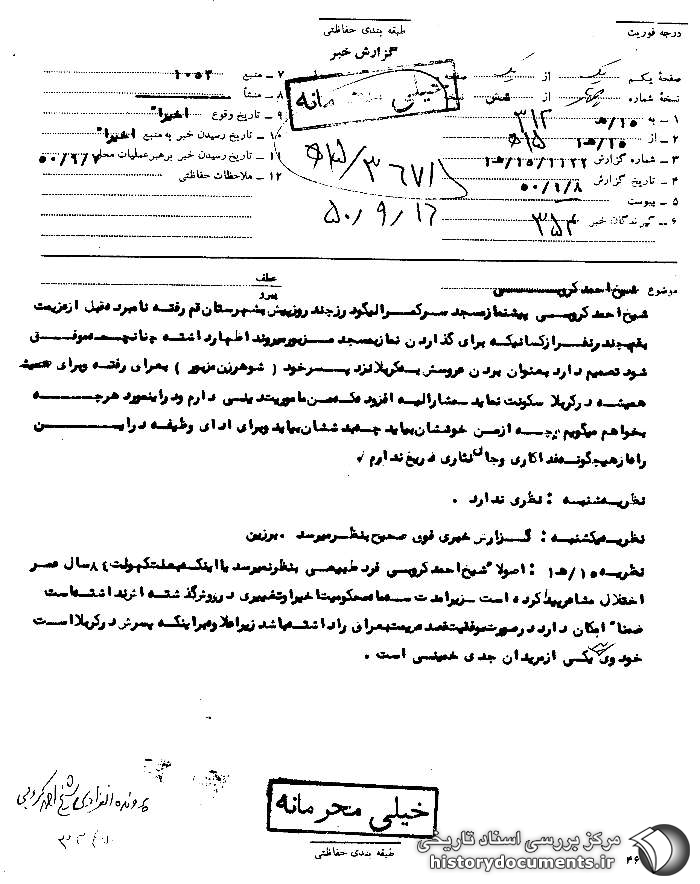 درجه فوریت
طبقه بندی حفاظتی
گزارش خبر
صفحهٔ یکم از یک صفحه
نسخهٔ شماره چهار از شش نسخه
۱ – به ۱۵/هـ ۳۱۲
۲ – از ۱۵/هـ۱
۳ – شماره گزارش ۱۵/۱۱۲۲/هـ۱
۴ – تاریخ گزارش ۵۰/۹/۸
۵ – پیوست
۶ – گیرندگان خبر
۷ – منبع ۱۰۵۲
۸ – منشأ
۹ – تاریخ وقوع اخیرا"
۱۰ – تاریخ رسیدن خبر به منبع اخیرا"
۱۱ – تاریخ رسیدن خبر برهبر عملیات محلی ۵۰/۹/۷
۱۲ – ملاحظات حفاظتی
خیلی محرمانه
۵۰/۹/۱۶
۳۵۴
موضوع شیخ احمد کروبی
عطف
پیرو
شیخ احمد کروبی پیشنماز مسجد سرکمرالیگودرز چند روز پیش بشهرستان قم رفته نامبرده قبل از عزیمت
بقم چند نفر از کسانیکه برای گذاردن نماز بمسجد مزبور میروند اظهار داشته چنانچه موفق
شود تصمیم دارد بعنوان بردن عروسش بکربلا نزد پسر خود ( شوهر زن مزبور ) بعراق رفته وبرای همیشه
همیشه در کربلا سکونت نماید مشارالیه افزود که من ماموریت دینی دارم ودراینمورد هرچه
بخواهم میگویم چه از من خوششان بیاید چه بدشان بیاید وبرای ادای وظیفه در این
راه از هیچگونه فداکاری وجان نثاری دریغ ندارم
نظریه شنبه : نظری ندارد .
نظریه یکشنبه : گزارش خبری فوق صحیح بنظر میرسد . برزین
نظریه ۱۵/هـ۱ : اصولا" شیخ احمد کروبی فرد طبیعی بنظر نمیرسد با اینکه بعلت کهولت ۸۴ سال عمر
اختلال مشاعر پیدا کرده است زیرا مدت سه ماه محکومیت اخیر او تغییری در رویه گذشته اثر نداشته است
ضمنا" امکان دارد در صورت موفقیت قصد عزیمت بعراق را داشته باشد زیرا علاوه براینکه پسرش در کربلا است
خود وی نیز یکی از مریدان جدی خمینی است .
پرونده انفرادی شیخ احمد کروبی
خیلی محرمانه
طبقه بندی حفاظتی
مرکز بررسی اسناد تاریخی
historydocuments.ir
۴۶